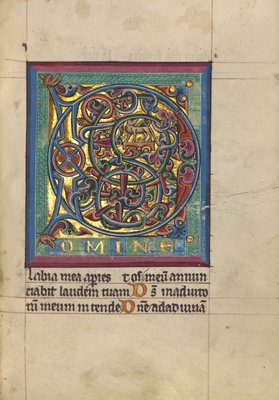 D
OMINE
labia mea aperies ⁊ os meū annun
ciabit laudem tuam D s̄ in adiuto
riū meum intende D ne ad adiuuā